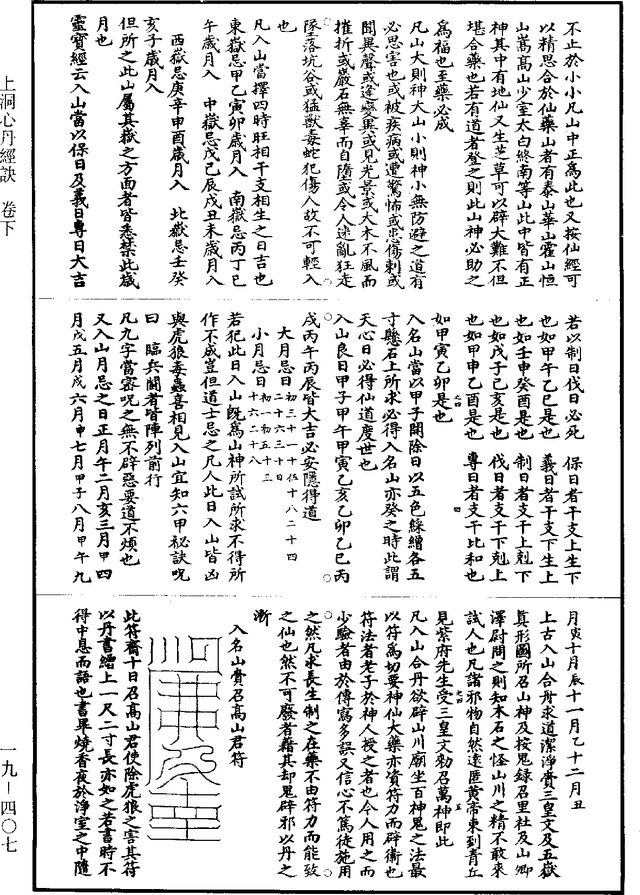 上洞心丹經訣　卷下
一九－四〇七
不止於小小凡山中正為此也又按仙經可
以精思合於仙藥山者有泰山華山霍山恒
山嵩高山少室太白終南等山此中皆有正
神其中有地仙又生芝草可以辟大難不但
堪合藥也若有道者登之則此山神必助之
為福也至藥必成
凡山大則神大山小則神小無防避之道有
必患害也或被疾病或遭驚怖或患傷刺或
聞異聲或逢變異或見光景或大木不風而
摧折或巖石無辜而自墮或令人迷亂狂走
墜落坑谷或猛獸毒蛇犯傷人故不可輕入
也
凡入山當擇四時旺相干支相生之日吉也
東嶽忌甲乙寅卯歲月入　南嶽忌丙丁巳
午歲月入　中嶽忌戊己辰戌丑未歲月入
西嶽忌庚辛申酉歲月入　北嶽忌壬癸
亥子歲月入
但所之此山屬其嶽之方面者皆悉禁此歲
月也
靈寶經云入山當以保日及義日專日大吉
若以制日伐日必死　保日者干支上生下
也如甲午乙巳是也　義日者干支下生上
也如壬申癸酉是也　制日者支干上剋下
也如戊子己亥是也　伐日者支干下剋上
也如甲申乙酉是也　專日者支干比和也
如甲寅乙卯是也
入名山當以甲子開除日以五色綵繒各五
寸懸石上所求必得入名山亦癸之時此謂
天心日必得仙道度世也
入山良日甲子甲午甲寅乙亥乙卯乙巳丙
戌丙午丙辰皆大吉必安隱得道
大月忌日初三十一十伍十八二十四
二十六三十日
小月忌日初一初五十三
十六二十八
若犯此日入山既為山神所試所求不得所
作不成豈但道士忌之凡人此日入山皆凶
與虎狼毒蟲喜相見入山宜知六甲祕訣呪
曰　臨兵鬪者皆陣列前行
凡九字當密呪之無不辟惡要道不煩也
又入山月忌之日正月午二月亥三月甲四
月戌五月戌六月申七月甲子八月甲午九
月寅十月辰十一月乙十二月丑
上古入山合丹求道潔淨賫三皇文及五嶽
真形圖所召山神及按鬼錄召里社及山卿
澤尉問之則知木石之怪山川之精不敢來
試人也凡諸邪物自然遠匿黃帝東到青丘
見紫府先生受三皇文劾召萬神即此
凡入山合丹欲辟山川廟坐百神鬼之法最
以符為切要神仙大藥亦資符力而辟衞也
符法者老子於神人授之者也今人用之而
少驗者由於傳寫多誤又信心不篤徒施用
之然凡求長生制之在藥不由符力而能致
之仙也然不可廢者藉其却鬼辟邪以丹之
漸
入名山賫召高山君符
此符齋十日召高山君使除虎狼之害其符
以丹書繒上一尺二寸長亦如之若書時不
得中息而語也書畢燒香夜於淨室之中隨